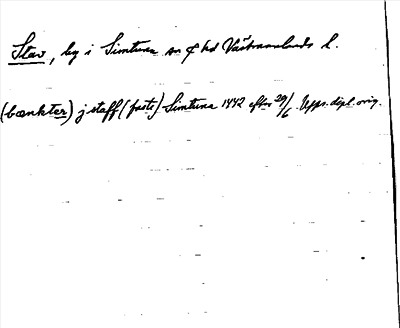 Stav, by i Simtuna sn o hd Västmanlands l.
(bænkter) j staff (faste) Simtuna 1442 efter 29/6 Upps. dipl. orig.